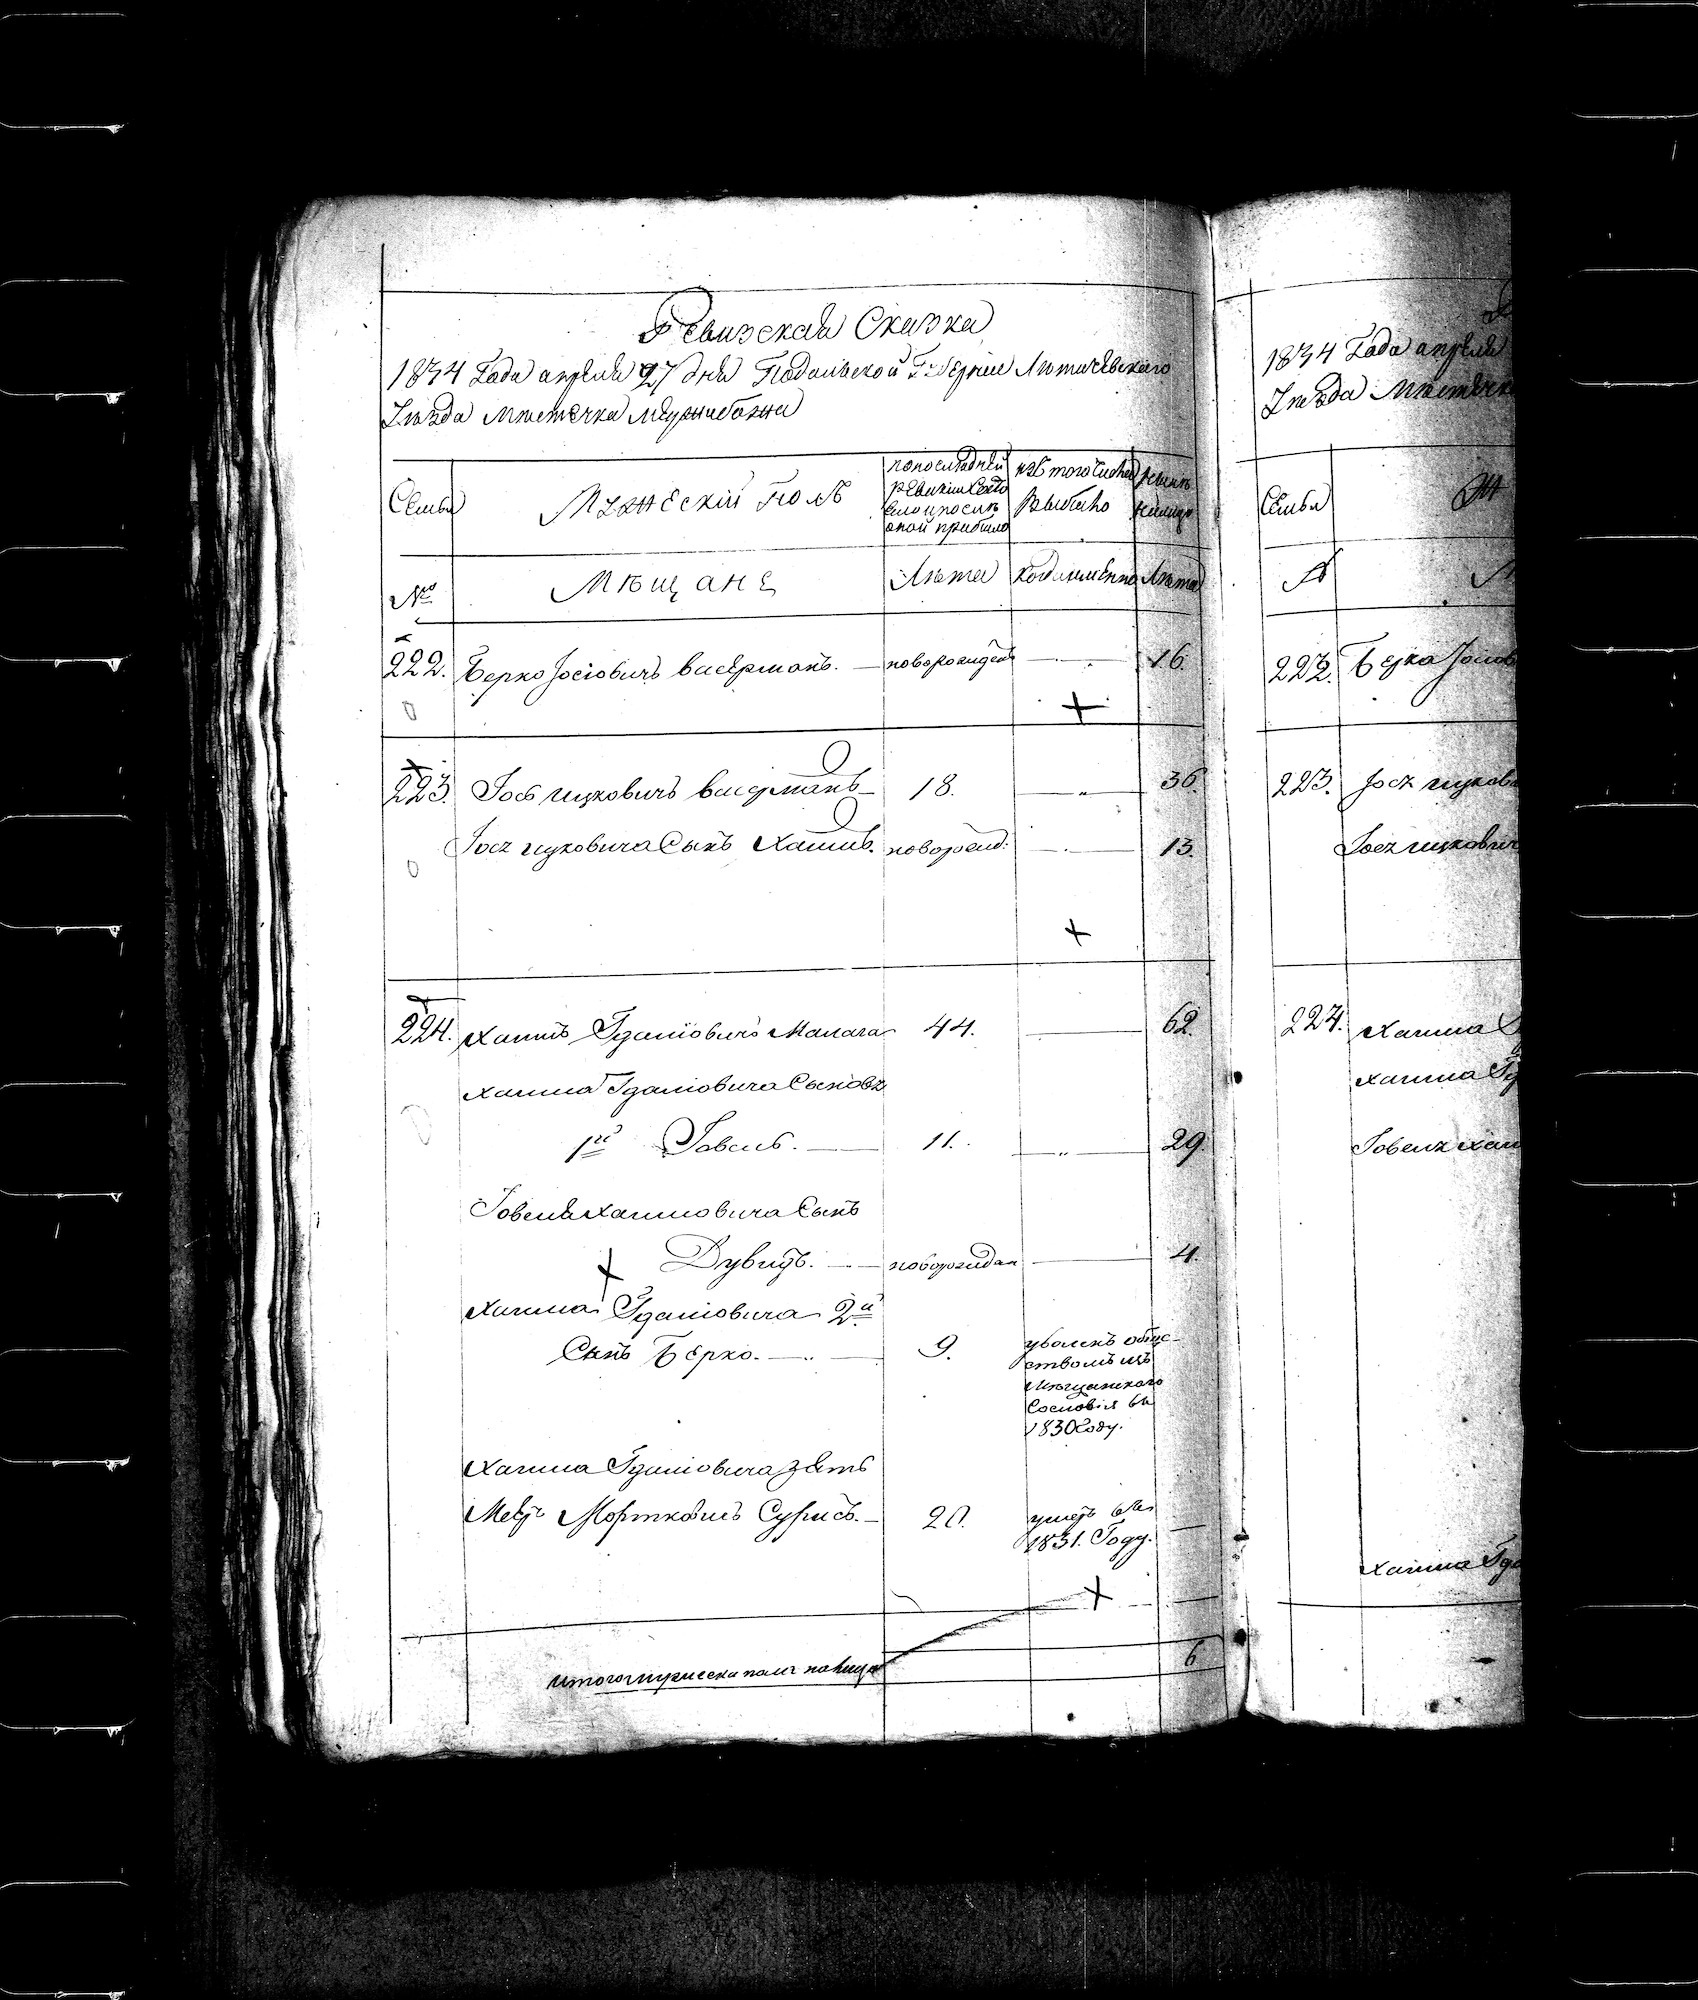 Ревизская Сказка
1834 Года апреля 27 дня Подольской Губернии Летичевского
Уезда Местечка Меджибожа
Семьи
Мужеский полъ
по последней ревизии состояло и после оной прибыло
изъ того числа выбыло
ныне налицо
№
Мещане
Лета
когда именно
Лета
222. Берко Iосiовичъ васерманъ. — новорожденъ — 16.
223. Iось ицковичъ васерманъ — 18. — „ — 36.
Iося ицковича Сынъ Хаимъ. новорожд: — 13.
224. Хаимъ Гдалiовичъ Малага 44. — 62.
Хаима Гдалiовича Сыновя
1й Iовель. — 11. — „ — 29.
Iовеля Хаимовича Сынъ
Дувидъ. — новорожден — 4.
Хаима Гдалiовича 2й
Сынъ Берко. — „ — 9.
уволенъ обще-
ствомъ изъ
мещанского
Сословiя въ
1830 Году.
Хаима Гдалiовича зять
Меер Мортковичъ Сурисъ. — 20.
умеръ въ
1831. Году.
итого мужеска пола налицо 6
1834 Года апреля
Уезда Местечка
Семьи
№
222. Берка Iосiов
223. Iося ицков
Iося ицкович
224. Хаима
Хаима Гд
Iовеля Хаи
Хаима Гда